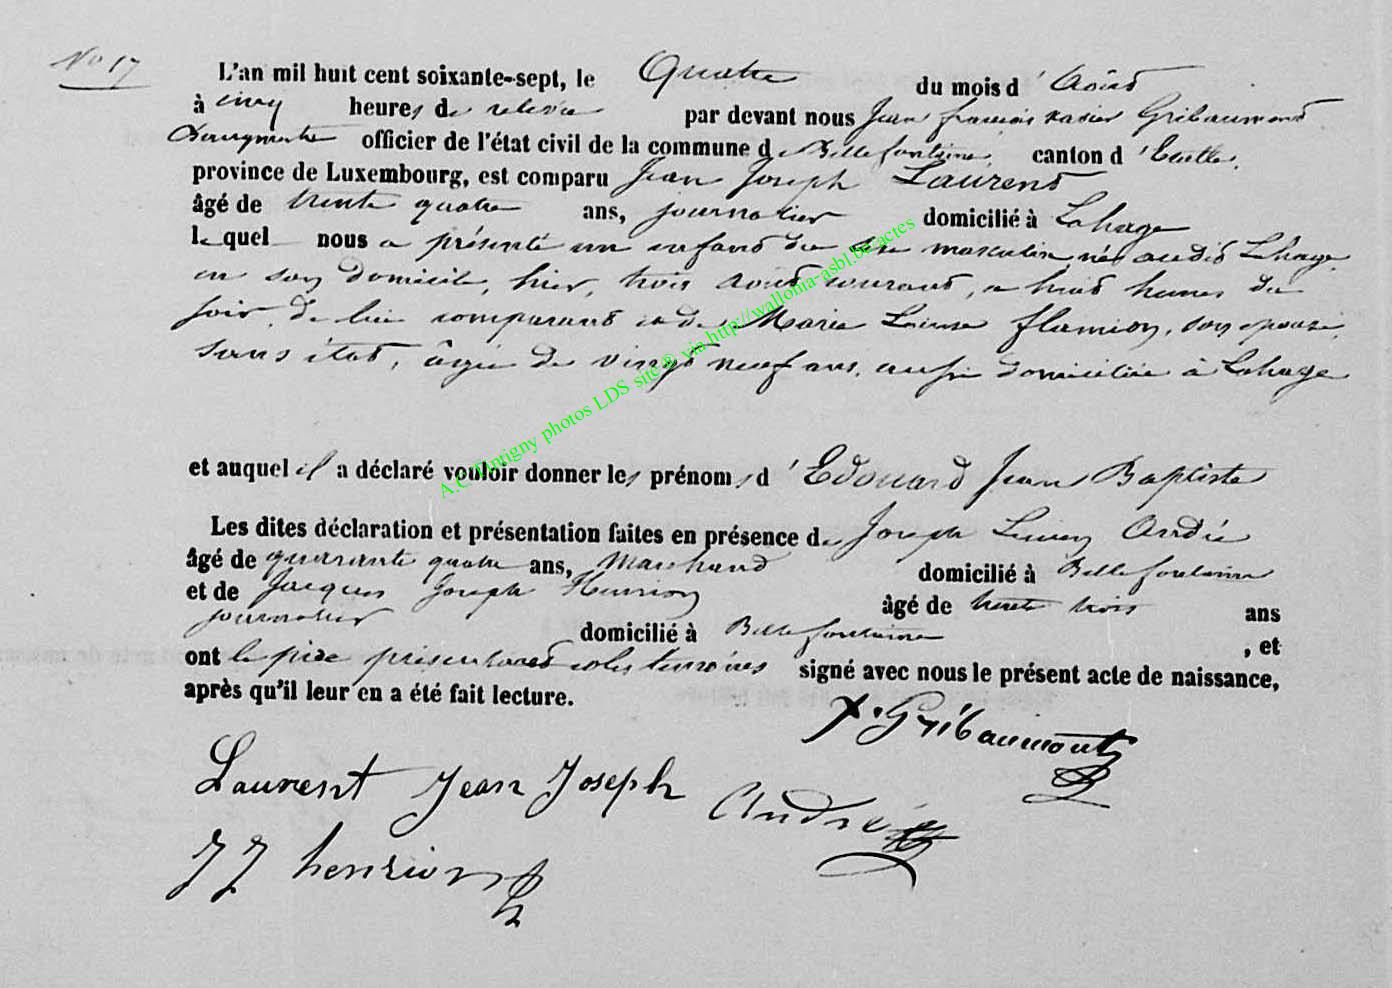 No 17
L'an mil huit cent soixante-sept, le Quatre du mois d'Août
à cinq heures de relevée par devant nous Jean françois xavier Gribaumont
Bourgmestre officier de l'état civil de la commune de Bellefontaine, canton d'Etalle,
province de Luxembourg, est comparu Jean Joseph Laurent
âgé de trente quatre ans, journalier domicilié à Lahage
lequel nous a présenté un enfant du sexe masculin, né audit Lahage,
en son domicile, hier, trois août courant, à huit heures du
soir, de lui comparant et de Marie Louise flamion, son épouse,
sans état, âgée de vingt neuf ans, aussi domiciliée à Lahage
et auquel il a déclaré vouloir donner les prénoms d'Edouard Jean Baptiste
Les dites déclaration et présentation faites en présence de Joseph Lucien André
âgé de quarante quatre ans, Marchand domicilié à Bellefontaine
et de Jacques Joseph Henrion âgé de trente trois ans
journalier domicilié à Bellefontaine, et
ont le père présentant et les témoins signé avec nous le présent acte de naissance,
après qu'il leur en a été fait lecture.
X. Gribaumont
Laurent Jean Joseph André
J J henrion
A.C. Tintigny photos LDS site® via http://wallonia-asbl.be/actes